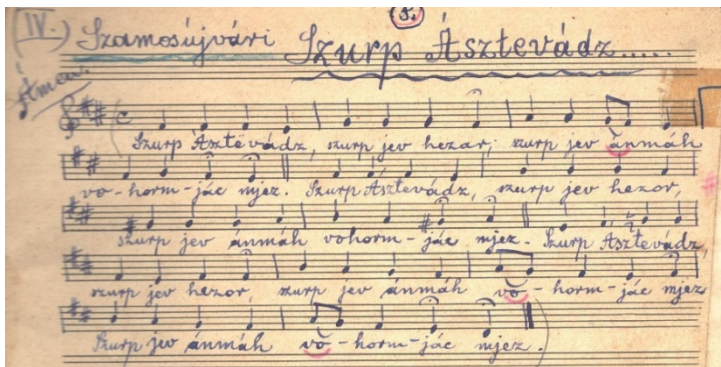 (5.)
IV.) Szamosújvári Szurp Ásztevádz.....
Ámen.
Szurp Ásztevádz, szurp jev hezar; szurp jev ánmáh
vo-horm-jác mjez. Szurp Ásztevádz, szurp jev hezor,
szurp jev ánmáh vohorm-jác mjez. Szurp Ásztevádz,
szurp jev hezor, szurp jev ánmáh vo-horm-jác mjez
Szurp jev ánmáh vo-horm-jác mjez.